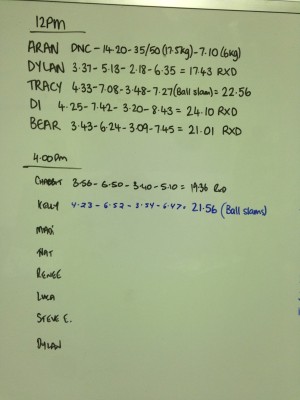 12PM
ARAN DNC - 14.20 - 35/50 (17.5kg) - 7.10 (6kg)
DYLAN 3.37 - 5.13 - 2.18 - 6.35 = 17.43 RXD
TRACY 4.33 - 7.08 - 3.48 - 7.27 (Ball slam) = 22.56
DI 4.25 - 7.42 - 3.20 - 8.43 = 24.10 RXD
BEAR 3.43 - 6.24 - 3.09 - 7.45 = 21.01 RXD
4.00pm
3.56 - 6.50 - 3.40 - 5.10 = 19.36 RXD
KELLY 4.23 - 6.52 - 3.54 - 6.47 = 21.56 (Ball slams)
NAT
RENEE
LUCA
STEVE E.
DYLAN